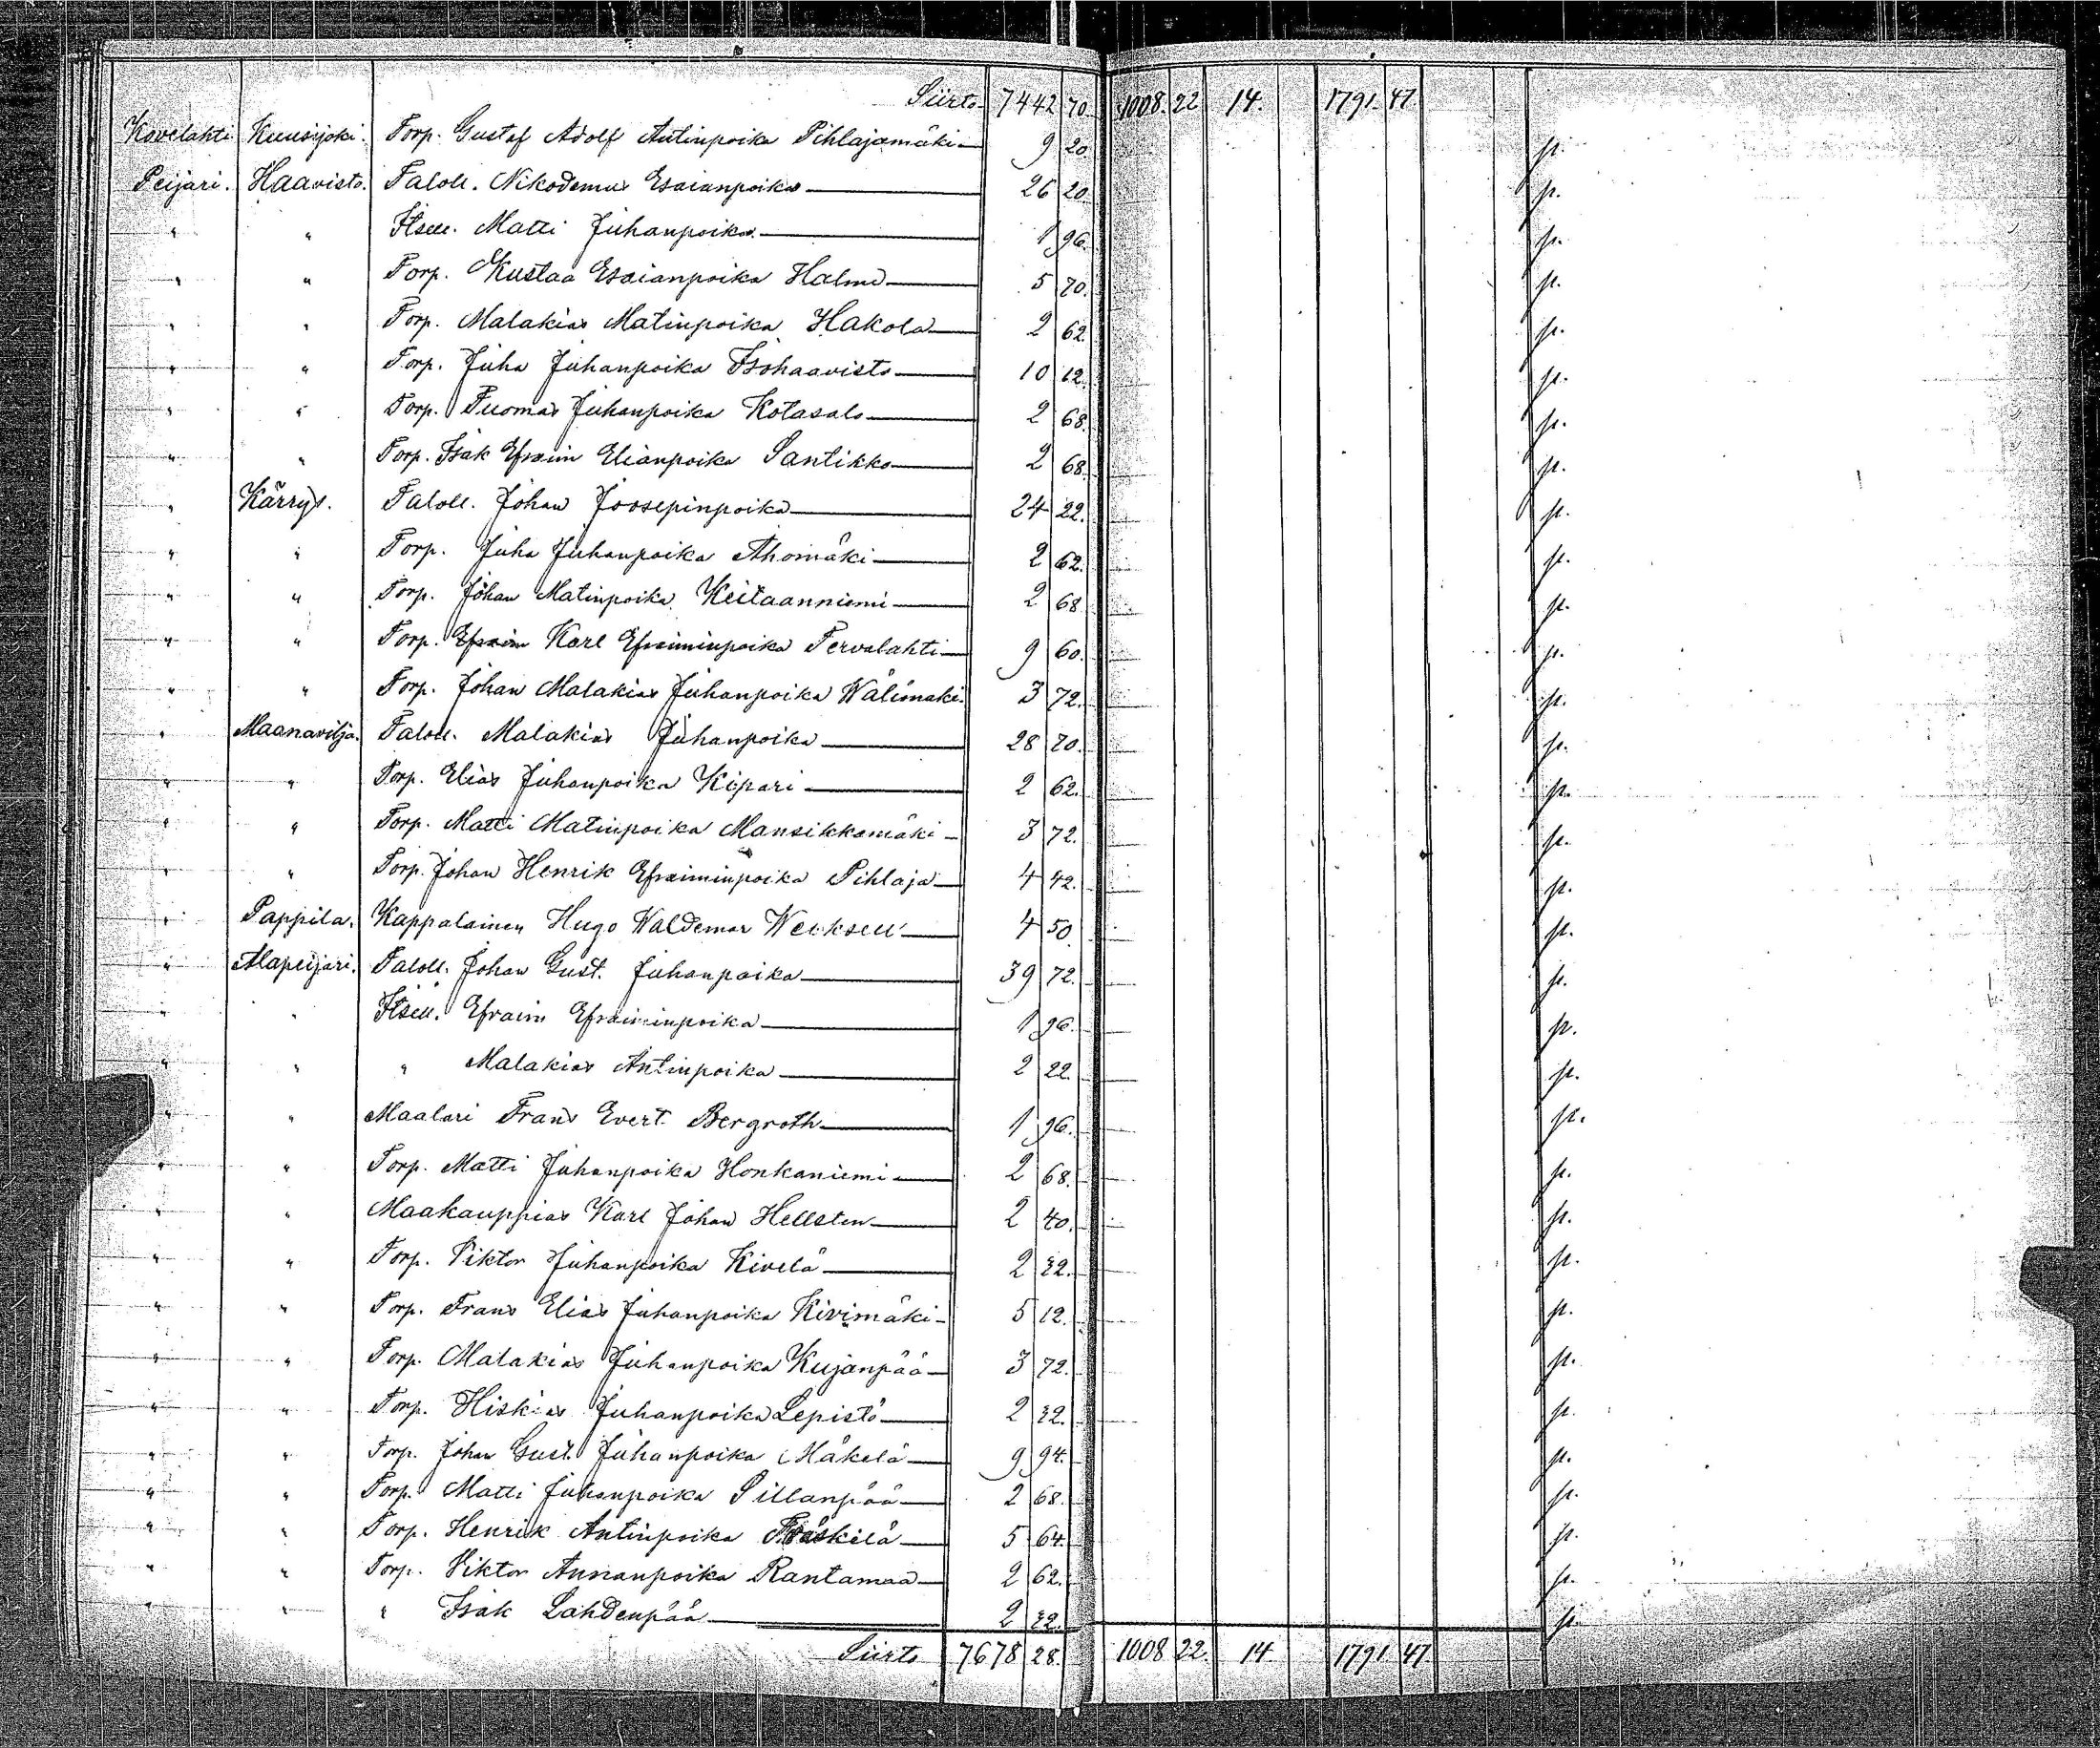 Siirto 7442 70 1008. 22 14. 1791. 47
Kovelahti Kuusijoki. Torp. Gustaf Adolf Antinpoika Pihlajamäki 9 20 p.
Peijari. Haavisto. Taloll. Nikodemus Esaianpoika 26 20 p.
" " Itsell. Matti Juhanpoika 1 96. p.
" " Torp. Kustaa Esaianpoika Halme 5 70. p.
" " Torp. Malakias Matinpoika Hakola 2 62 p.
" " Torp. Juha Juhanpoika Isohaavisto 10 12. p.
" " Torp. Tuomas Juhanpoika Kotasalo 2 68. p.
" " Torp. Isak Efraim Elianpoika Santikko 2 68. p.
" Kärrys. Taloll. Johan Joosepinpoika 24 22. p.
" " Torp. Juha Juhanpoika Ahomäki 2 62. p.
" " Torp. Johan Matinpoika Keitaanniemi 2 68 p.
" " Torp. Efraim Karl Efraiminpoika Tervalahti 9 60. p.
" " Torp. Johan Malakias Juhanpoika Wälimäki 3 72. p.
" Maanavilja. Taloll. Malakias Juhanpoika 28 70. p.
" " Torp. Elias Juhanpoika Kipari 2 62. p.
" " Torp. Matti Matinpoika Mansikkamäki 3 72. p.
" " Torp. Johan Henrik Efraiminpoika Pihlaja 4 42. p.
" Pappila. Kappalainen Hugo Waldemar 4 50 p.
" Alapeijari. Taloll. Johan Gust. Juhanpoika 39 72. p.
" " Itsell. Efraim Efraiminpoika 1 96. p.
" " " Malakias Antinpoika 2 22 p.
" " Maalari Frans Evert. Bergroth 1 96. p.
" " Torp. Matti Juhanpoika Honkaniemi 2 68. p.
" " Maakauppias Karl Johan Hellsten 2 40. p.
" " Torp. Viktor Juhanpoika Kivelä 2 32. p.
" " Torp. Frans Elias Juhanpoika Kivimäki 5 12. p.
" " Torp. Malakias Juhanpoika Kujanpää 3 72. p.
" " Torp. Hiskias Juhanpoika Lepistö 2 32. p.
" " Torp. Johan Gust. Juhanpoika Mäkelä 9 94. p.
" " Torp. Matti Juhanpoika Sillanpää 2 68. p.
" " Torp. Henrik Antinpoika 5 64. p.
" " Torp. Viktor Annanpoika Rantamaa 2 62. p.
" " " Isak Lahdenpää 2 32. p.
Siirto 7678 28. 1008 22. 14 1791 47